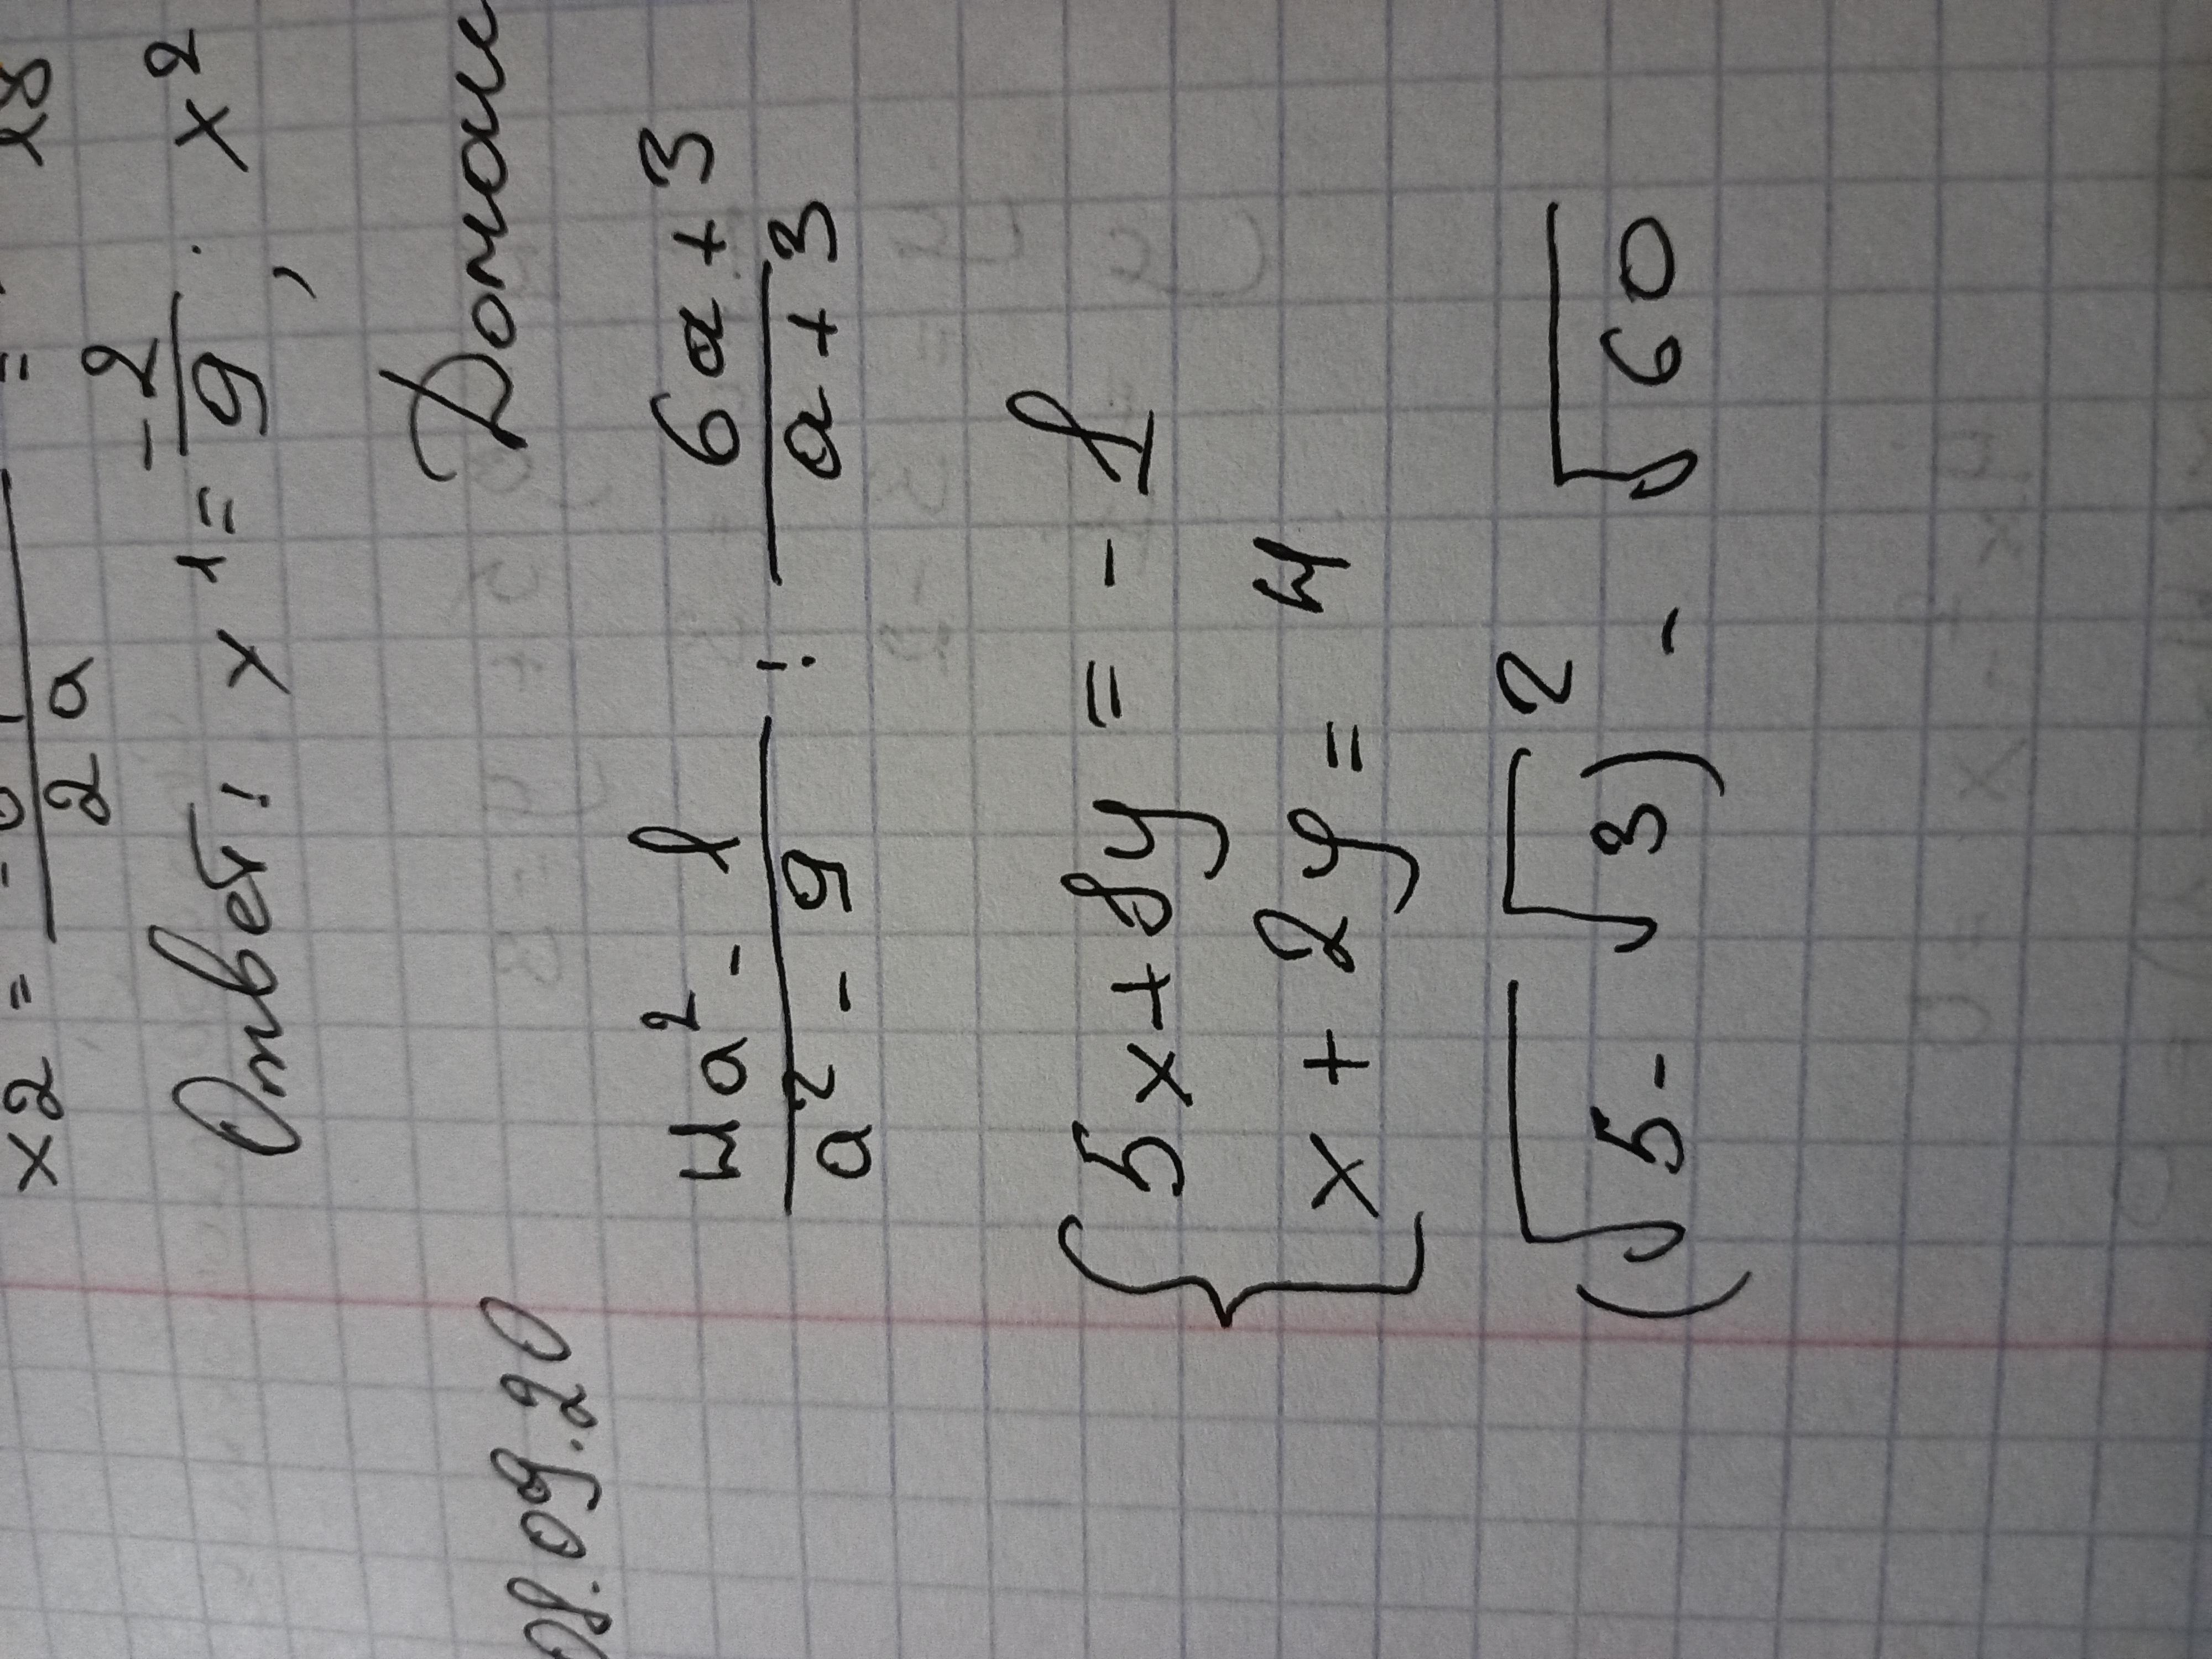 x2 = 2a =
Ответ: x1 = -2/9; x2
08.09.20
(4a² - 1)/(a² - 9) : (6a + 3)/(a + 3)
{ 5x + 8y = -1
x + 2y = 4
(√5 - √3)² - √60